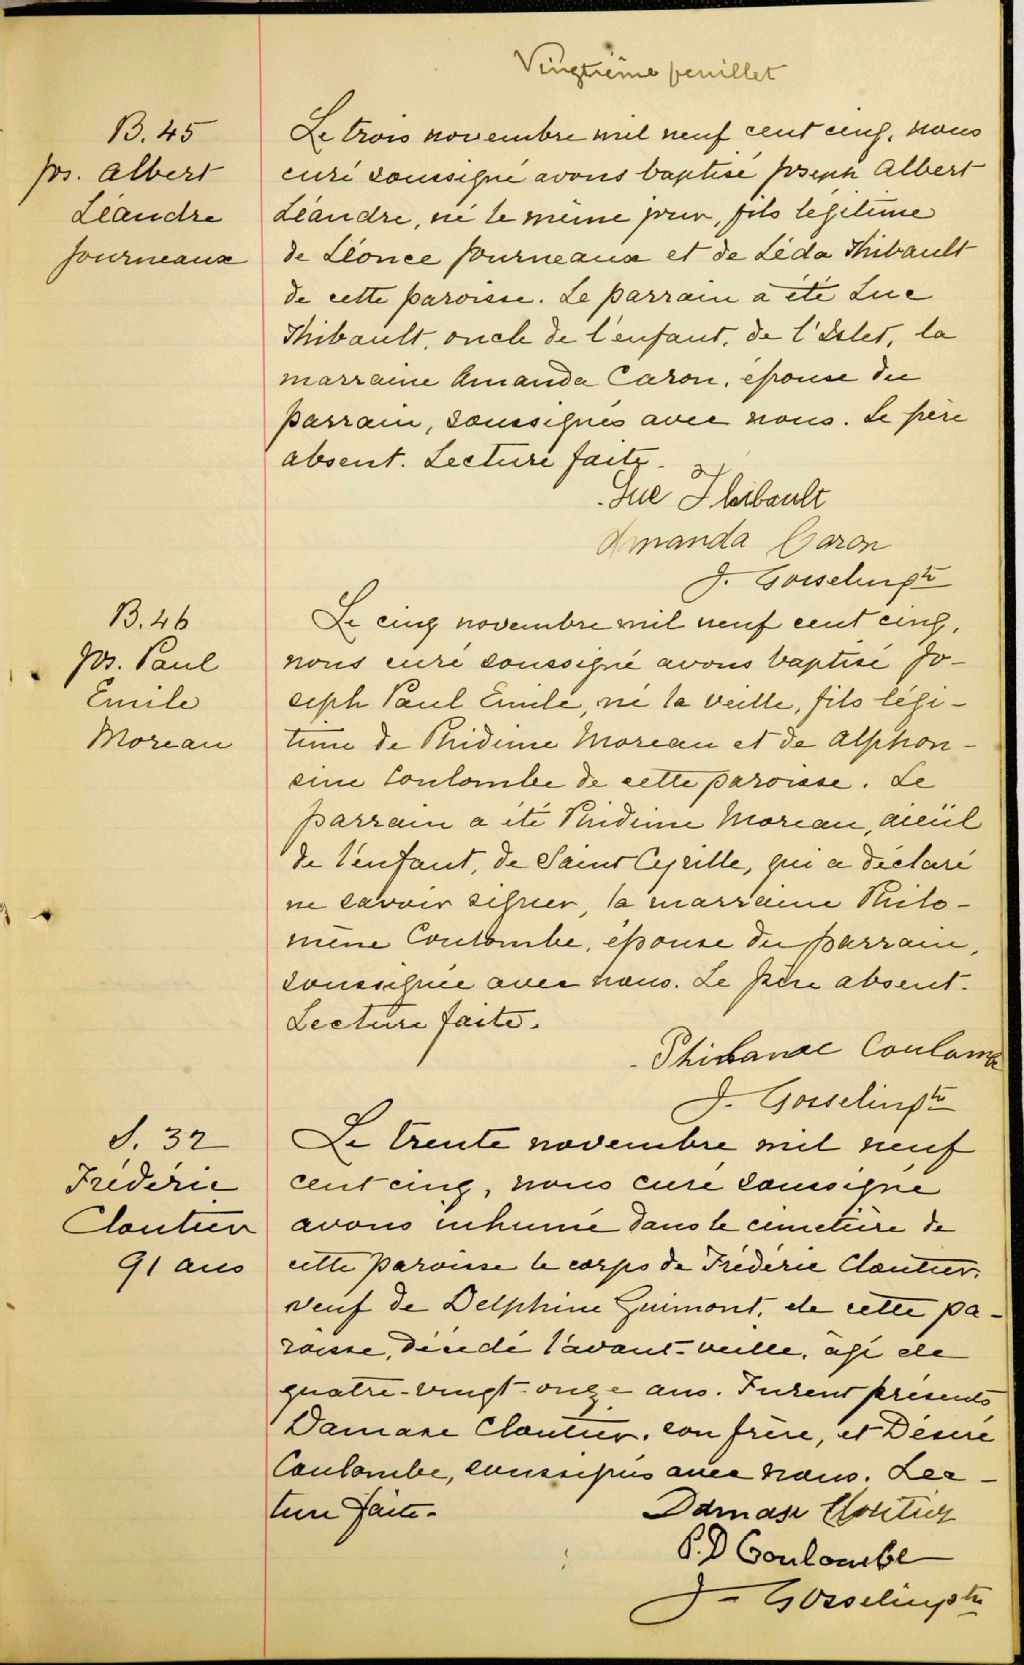 Vingtième feuillet
B. 45
Jos. Albert
Léandre
Journeaux
Le trois novembre mil neuf cent cinq, nous
curé soussigné avons baptisé Joseph Albert
Léandre, né le même jour, fils légitime
de Léonce Journeaux et de Léda Thibault
de cette paroisse. Le parrain a été Luc
Thibault, oncle de l'enfant, de l'Islet, la
marraine Amanda Caron, épouse du
parrain, soussignés avec nous. Le père
absent. Lecture faite.
Luc Thibault
Amanda Caron
J. Gosselin ptre
B. 46
Jos. Paul
Emile
Moreau
Le cinq novembre mil neuf cent cinq,
nous curé soussigné avons baptisé Jo-
seph Paul Emile, né la veille, fils légi-
time de Phidime Moreau et de Alphon-
sine Coulombe de cette paroisse. Le
parrain a été Phidime Moreau, aieül
de l'enfant, de Saint Cyrille, qui a déclaré
ne savoir signer, la marraine Philo-
mène Coulombe, épouse du parrain,
soussignée avec nous. Le père absent.
Lecture faite.
Coulombe
J. Gosselin ptre
S. 32
Frédéric
Cloutier
91 ans
Le trente novembre mil neuf
cent cinq, nous curé soussigné
avons inhumé dans le cimetière de
cette paroisse le corps de Frédéric Cloutier,
veuf de Delphine Guimont, de cette pa-
roisse, décédé l'avant-veille, âgé de
quatre-vingt-onze ans. Furent présents
Damase Cloutier, son frère, et Désiré
Coulombe, soussignés avec nous. Lec-
ture faite.
Damase Cloutier
P. D Coulombe
J. Gosselin ptre